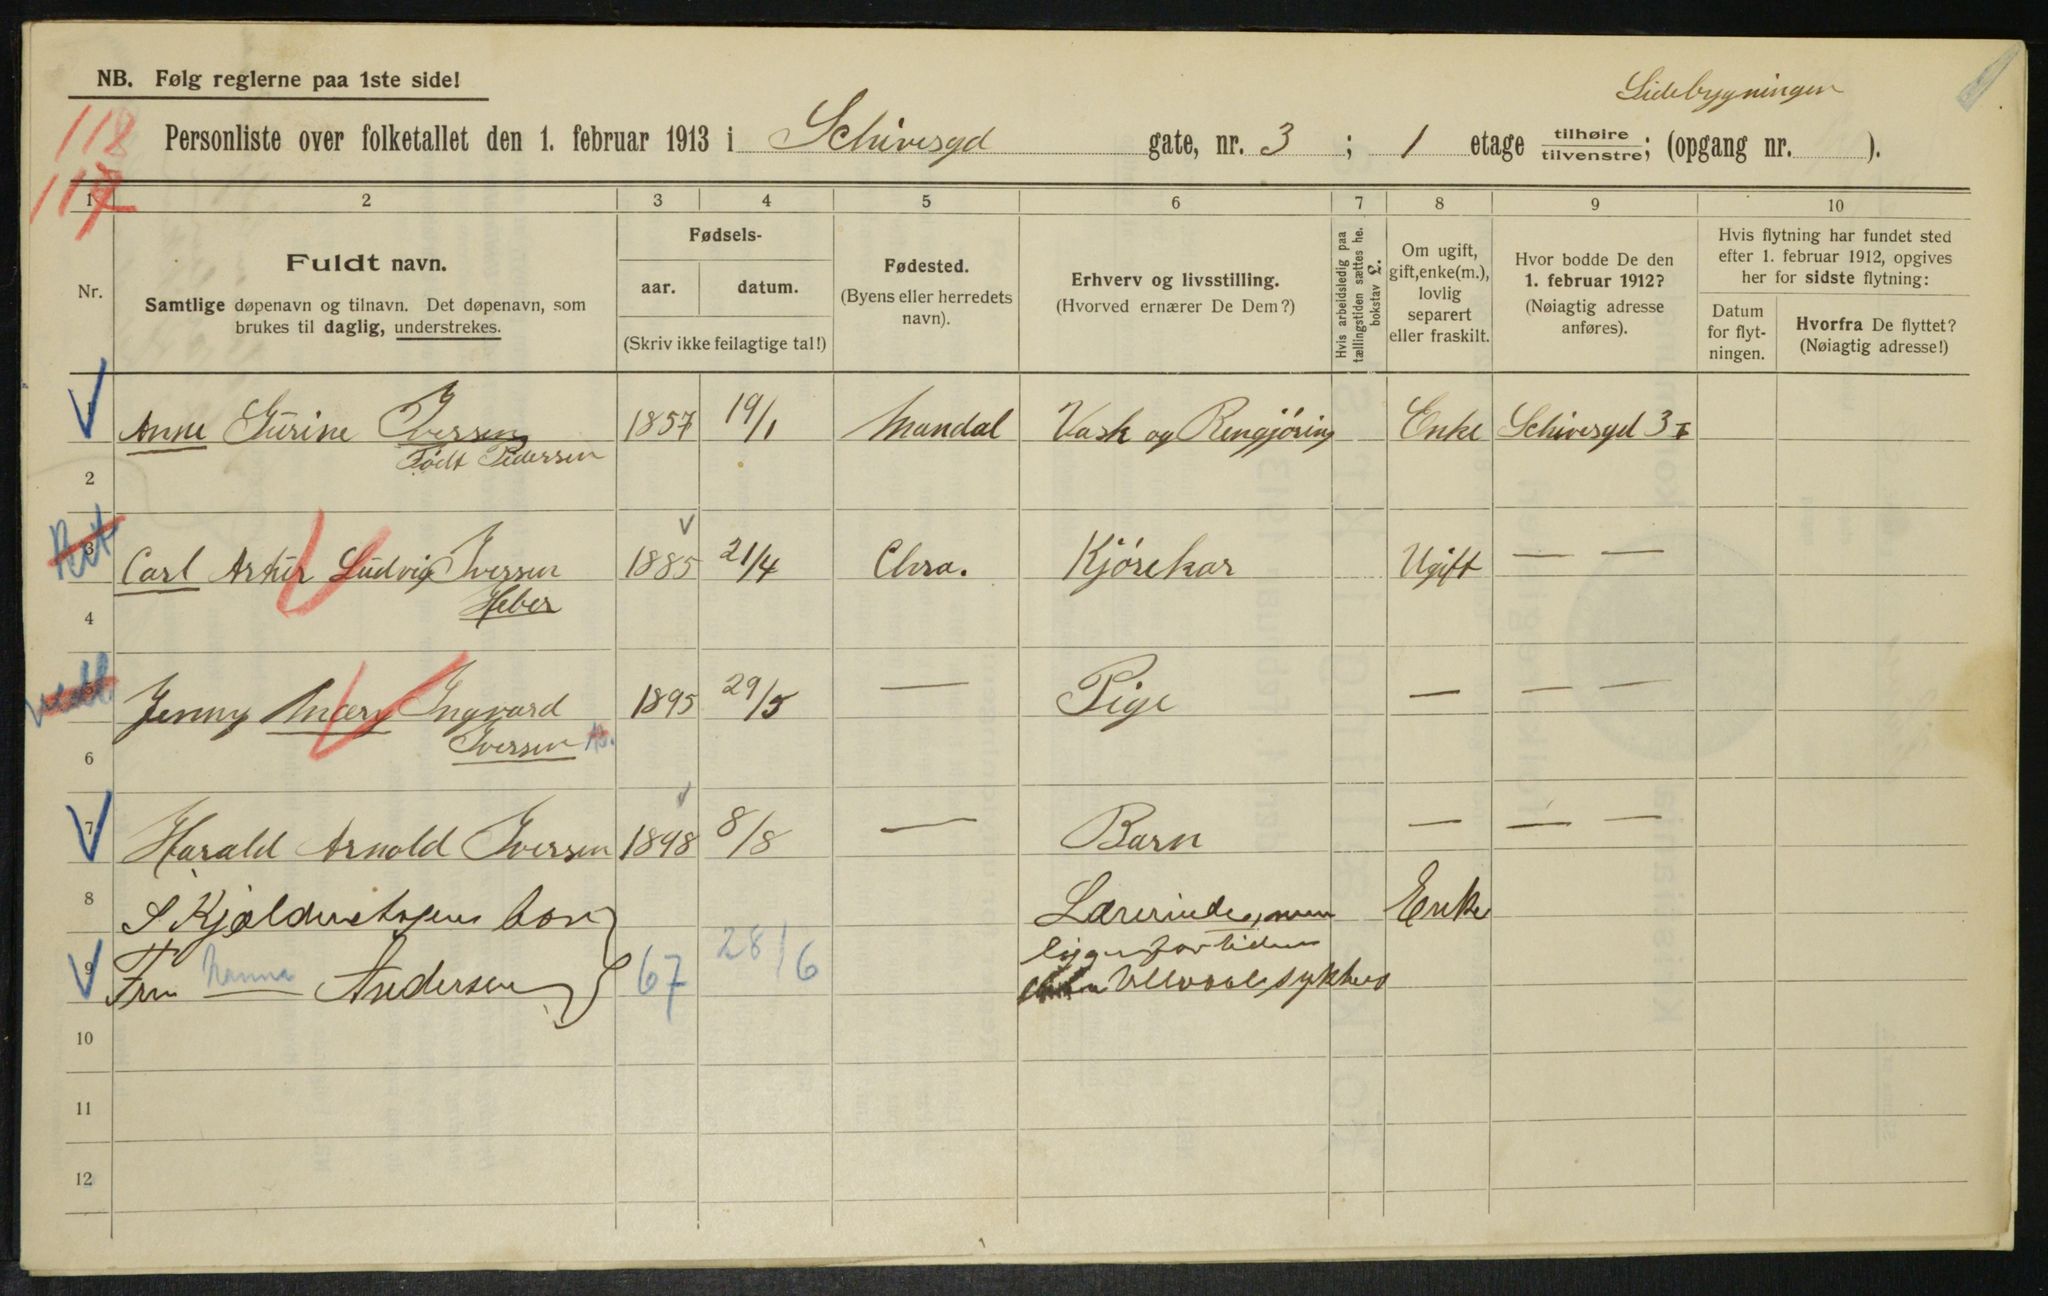 Sidebygningen
NB. Følg reglerne paa 1ste side!
118
117
Personliste over folketallet den 1. februar 1913 i Schivesgd gate, nr. 3 ; 1 etage tilhøire/tilvenstre; (opgang nr. ).
1 2 3 4 5 6 7 8 9 10
Nr.
Fuldt navn.
Samtlige døpenavn og tilnavn. Det døpenavn, som
brukes til daglig, understrekes.
Fødsels-
aar. datum.
(Skriv ikke feilagtige tal!)
Fødested.
(Byens eller herredets
navn).
Erhverv og livsstilling.
(Hvorved ernærer De Dem?)
Hvis arbeidsledig paa
tællingstiden sættes he.
bokstav L.
Om ugift,
gift, enke(m.),
lovlig
separert
eller fraskilt.
Hvor bodde De den
1. februar 1912?
(Nøiagtig adresse
anføres).
Hvis flytning har fundet sted
efter 1. februar 1912, opgives
her for sidste flytning:
Datum
for flyt-
ningen.
Hvorfra De flyttet?
(Nøiagtig adresse!)
1 Anne Turine Iversen 1857 19/1 Mandal Vask og Rengjøring Enke Schivesgd 3 I
Født Pedersen
2
3 Carl Artur Ludvig Iversen 1885 21/4 Chra. Kjørekar Ugift — —
Heber
4
5 Jenny Mary Ingvard 1895 29/5 — Pige — — —
Iversen
6
7 Harald Arnold Iversen 1898 8/8 — Barn — — —
8 S Kjælderetagen bor Lærerinde, men Enke
ligger for tiden
9 Fru Hanna Andersen 67 28/6 Ullevaal sykehus
10
11
12